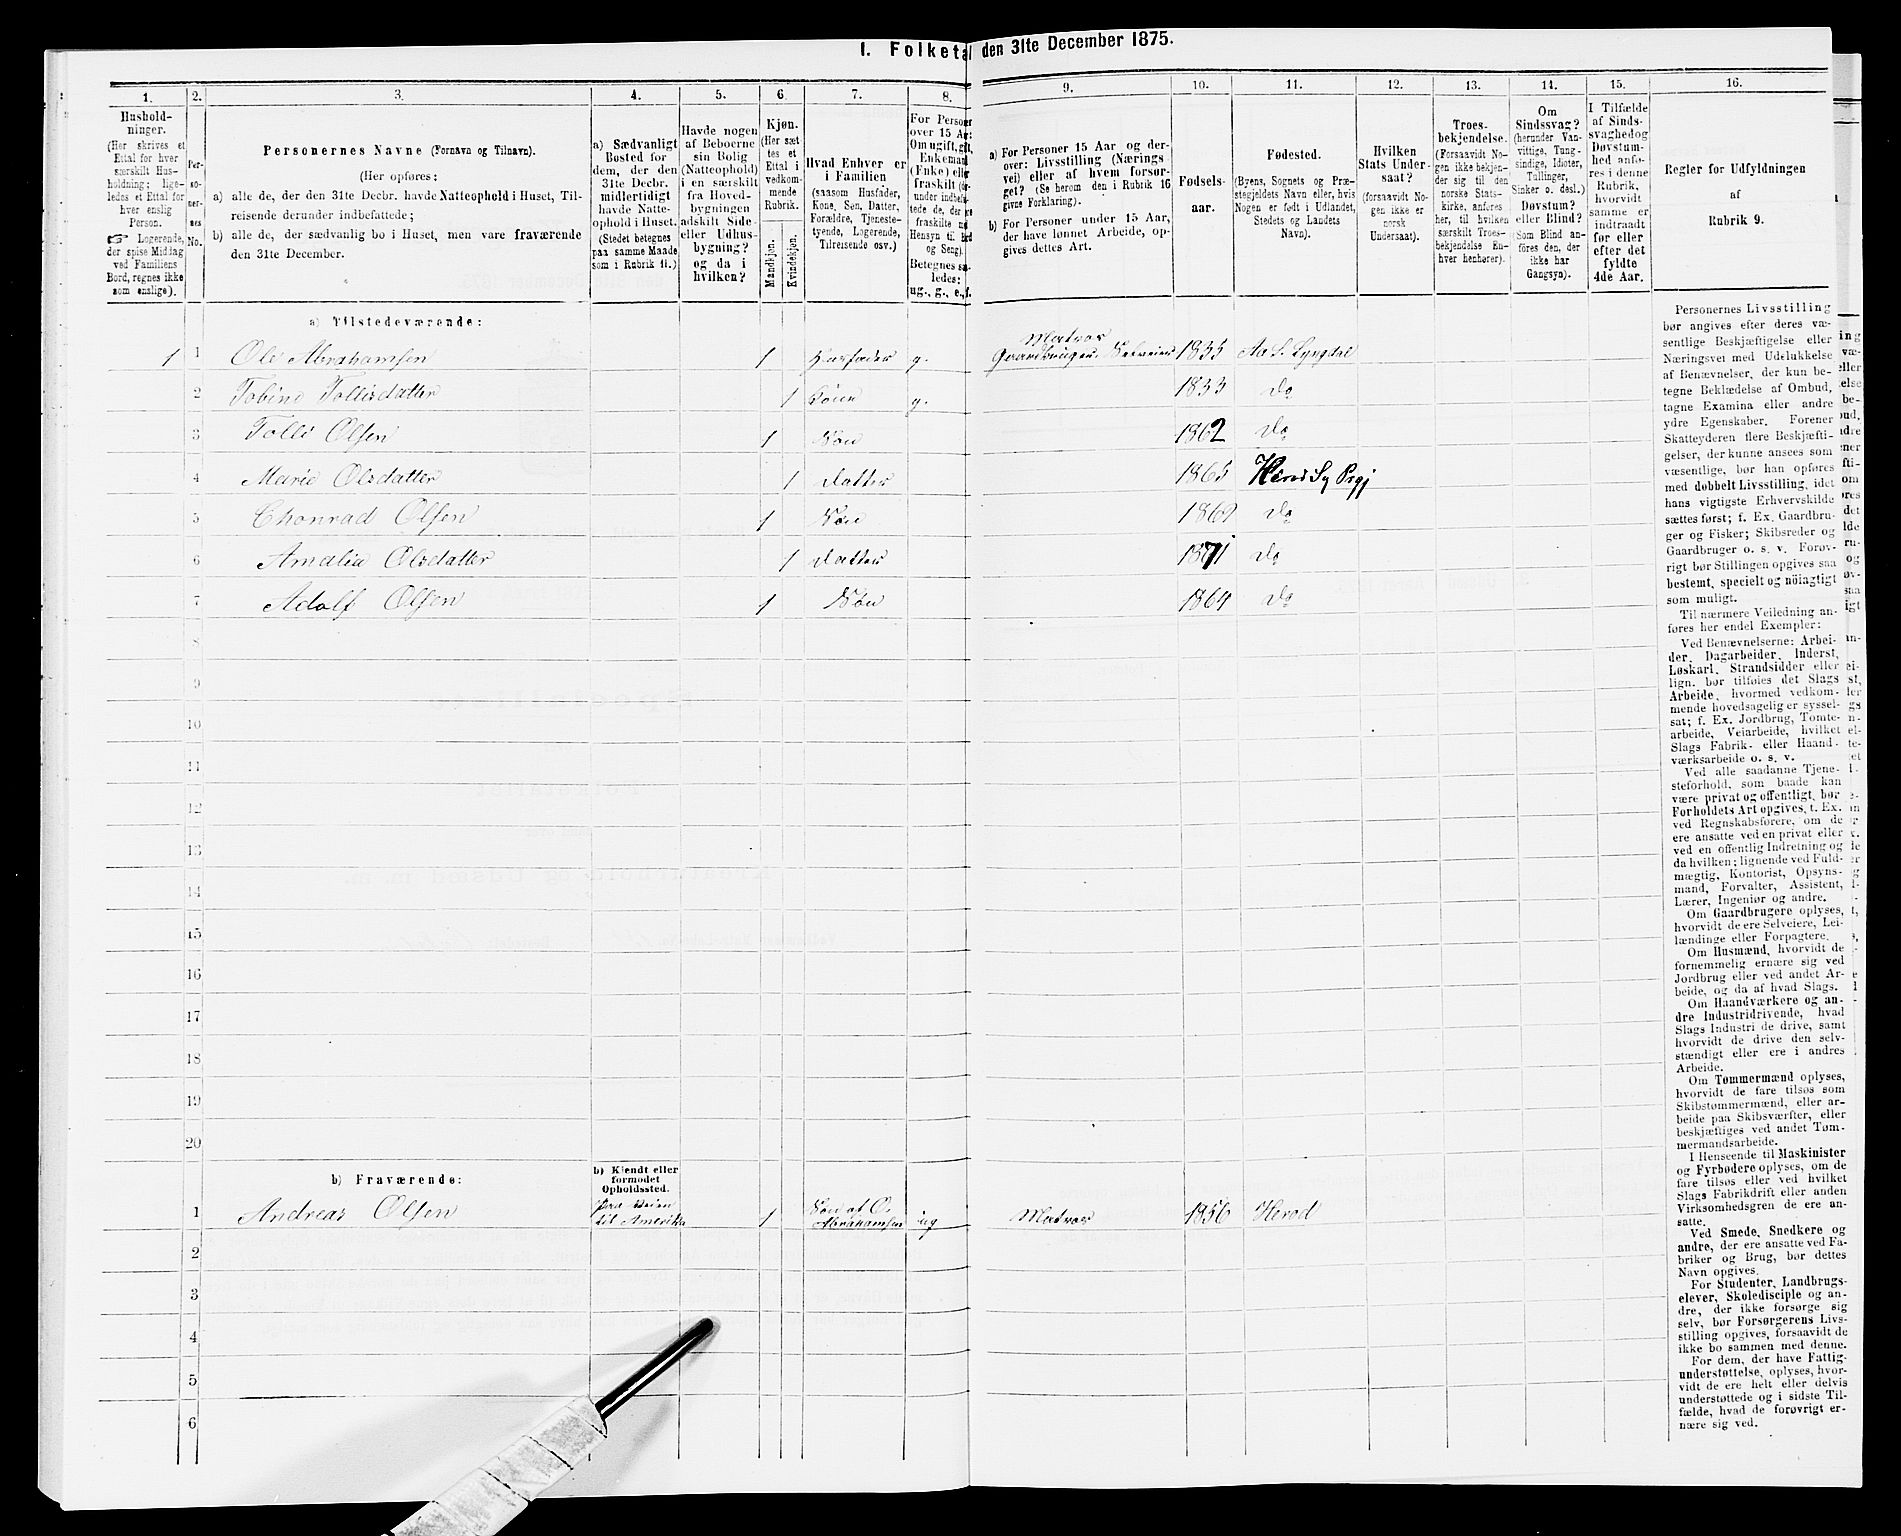 I. Folketal den 31te December 1875.
1.
2.
3.
4.
5.
6.
7.
8.
9.
10.
11.
12.
13.
14.
15.
16.
Hushold-
ninger.
(Her skrives et
Ettal for hver
særskilt Hus-
holdning; lige-
ledes et Ettal for
hver enslig
Person.
☞ Logerende,
der spise Middag
ved Familiens
Bord, regnes ikke
som enslige).
Per-
so-
ner-
nes
No.
Personernes Navne (Fornavn og Tilnavn).
(Her opføres:
a) alle de, der den 31te Decbr. havde Natteophold i Huset, Til-
reisende derunder indbefattede;
b) alle de, der sædvanlig bo i Huset, men vare fraværende
den 31te December.
a) Sædvanligt
Bosted for
dem, der den
31te Decbr.
midlertidigt
havde Natte-
ophold i Huset.
(Stedet betegnes
paa samme Maade
som i Rubrik 11.)
Havde nogen
af Beboerne
sin Bolig
(Natteophold)
i en særskilt
fra Hoved-
bygningen
adskilt Side-
eller Udhus-
bygning?
og da i
hvilken?
Kjøn.
(Her sæt-
tes et
Ettal i
vedkom-
mende
Rubrik.
Mandkjøn.
Kvindekjøn.
Hvad Enhver er
i Familien
(saasom Husfader,
Kone, Søn, Datter,
Forældre, Tjeneste-
tyende, Logerende,
Tilreisende osv.)
For Personer
over 15 Aar:
Om ugift, gift,
Enkemand
(Enke) eller
fraskilt
Betegnes saa-
ledes:
ug., g., e., f.
a) For Personer 15 Aar og der-
over: Livsstilling (Nærings-
vei) eller af hvem forsør-
get? (Se herom den i Rubrik 16
givne Forklaring).
b) For Personer under 15 Aar,
der have lønnet Arbeide, op-
gives dettes Art.
Fødsels-
aar.
Fødested.
(Byens, Sognets og Præ-
stegjeldets Navn eller, hvis
Nogen er født i Udlandet,
Stedets og Landets
Navn).
Hvilken
Stats Under-
saat?
(forsaavidt No-
gen ikke er
norsk
Undersaat).
Troes-
bekjendelse.
(Forsaavidt No-
gen ikke bekjen-
der sig til den
norske Stats-
kirke, anføres
her, til hvilken
særskilt Troes-
bekjendelse En-
hver henhører).
Om
Sindssvag?
(herunder Van-
vittige, Tung-
sindige, Idioter,
Tullinger,
Sinker o. desl.)
Døvstum?
eller Blind?
(Som Blind an-
føres den, der
ikke har
Gangsyn).
I Tilfælde
af Sinds-
svaghed og
Døvstum-
hed anfø-
res i denne
Rubrik,
hvorvidt
samme er
indtraadt
før eller
efter det
fyldte
4de Aar.
Regler for Udfyldningen
af
Rubrik 9.
a) Tilstedeværende:
Matros
1 1 Ole Abrahamsen 1 Husfader g. Gaardbruger Selveier 1835 Aa S. Lyngdal
2 Tobine Tollisdatter 1 Kone g. 1833 Do
3 Tolli Olsen 1 Søn 1862 Do
4 Marie Olsdatter 1 Datter 1865
5 Chonrad Olsen 1 Søn 1869 Do
6 Amalia Olsdatter 1 Datter 1871 Do
7 Adolf Olsen 1 Søn 1864 Do
8
9
10
11
12
13
14
15
16
17
18
19
20
b) Fraværende:
b) Kjendt eller
formodet
Opholdssted.
Paa Reisen
til Amerika
1 Andreas Olsen 1 Søn af O.
Abrahamsen ug Matros 1856 Herod
2
3
4
5
6
Personernes Livsstilling
bør angives efter deres væ-
sentlige Beskjæftigelse eller
Næringsvei med Udelukkelse
af Benævnelser, der kun be-
tegne Beklædelse af Ombud,
tagne Examina eller andre
ydre Egenskaber. Forener
Skatteyderen flere Beskjæfti-
gelser, der kunne ansees som
væsentlige, bør han opføres
med dobbelt Livsstilling, idet
hans vigtigste Erhvervskilde
sættes først; f. Ex. Gaardbru-
ger og Fisker; Skibsreder og
Gaardbruger o. s. v. Forøv-
rigt bør Stillingen opgives saa
bestemt, specielt og nöiagtigt
som muligt.
Til nærmere Veiledning an-
føres her endel Exempler:
Ved Benævnelserne: Arbei-
der, Dagarbeider, Inderst,
Løskarl, Strandsidder eller
lign. bør tilføies det Slags
Arbeide, hvormed vedkom-
mende hovedsagelig er syssel-
sat; f. Ex. Jordbrug, Tomte-
arbeide, Veiarbeide, hvilket
Slags Fabrik- eller Haand-
værksarbeide o. s. v.
Ved alle saadanne Tjene-
steforhold, som baade kan
være privat og offentligt, bør
Forholdets Art opgives, t. Ex.
ved Regnskabsførere, om de
ere ansatte ved en privat eller
ved en offentlig Indretning og
da hvilken; lignende ved Fuld-
mægtig, Kontorist, Opsyns-
mand, Forvalter, Assistent,
Lærer, Ingeniør og andre.
Om Gaardbrugere oplyses,
hvorvidt de ere Selveiere, Lei-
lændinge eller Forpagtere.
Om Husmænd, hvorvidt de
fornemmelig ernære sig ved
Jordbrug eller ved andet Ar-
beide, og da af hvad Slags.
Om Haandværkere og an-
dre Industridrivende, hvad
Slags Industri de drive, samt
hvorvidt de drive den selv-
stændigt eller ere i andres
Arbeide.
Om Tømmermænd oplyses,
hvorvidt de fare tilsøs som
Skibstømmermænd, eller ar-
beide paa Skibsværfter, eller
beskjæftiges ved andet Tøm-
mermandsarbeide.
I Henseende til Maskinister
og Fyrbødere oplyses, om de
fare tilsøs eller ved hvilket
Slags Fabrikdrift eller anden
Virksomhedsgren de ere an-
satte.
Ved Smede, Snedkere og
andre, der ere ansatte ved Fa-
briker og Brug, bør dettes
Navn opgives.
For Studenter, Landbrugs-
elever, Skoledisciple og an-
dre, der ikke forsørge sig
selv, bør Forsørgerens Livs-
stilling opgives, forsaavidt de
ikke bo sammen med denne.
For dem, der have Fattig-
understøttelse, oplyses, hvor-
vidt de ere helt eller delvis
understøttede og i sidste Til-
fælde, hvad de forøvrigt er-
nære sig ved.